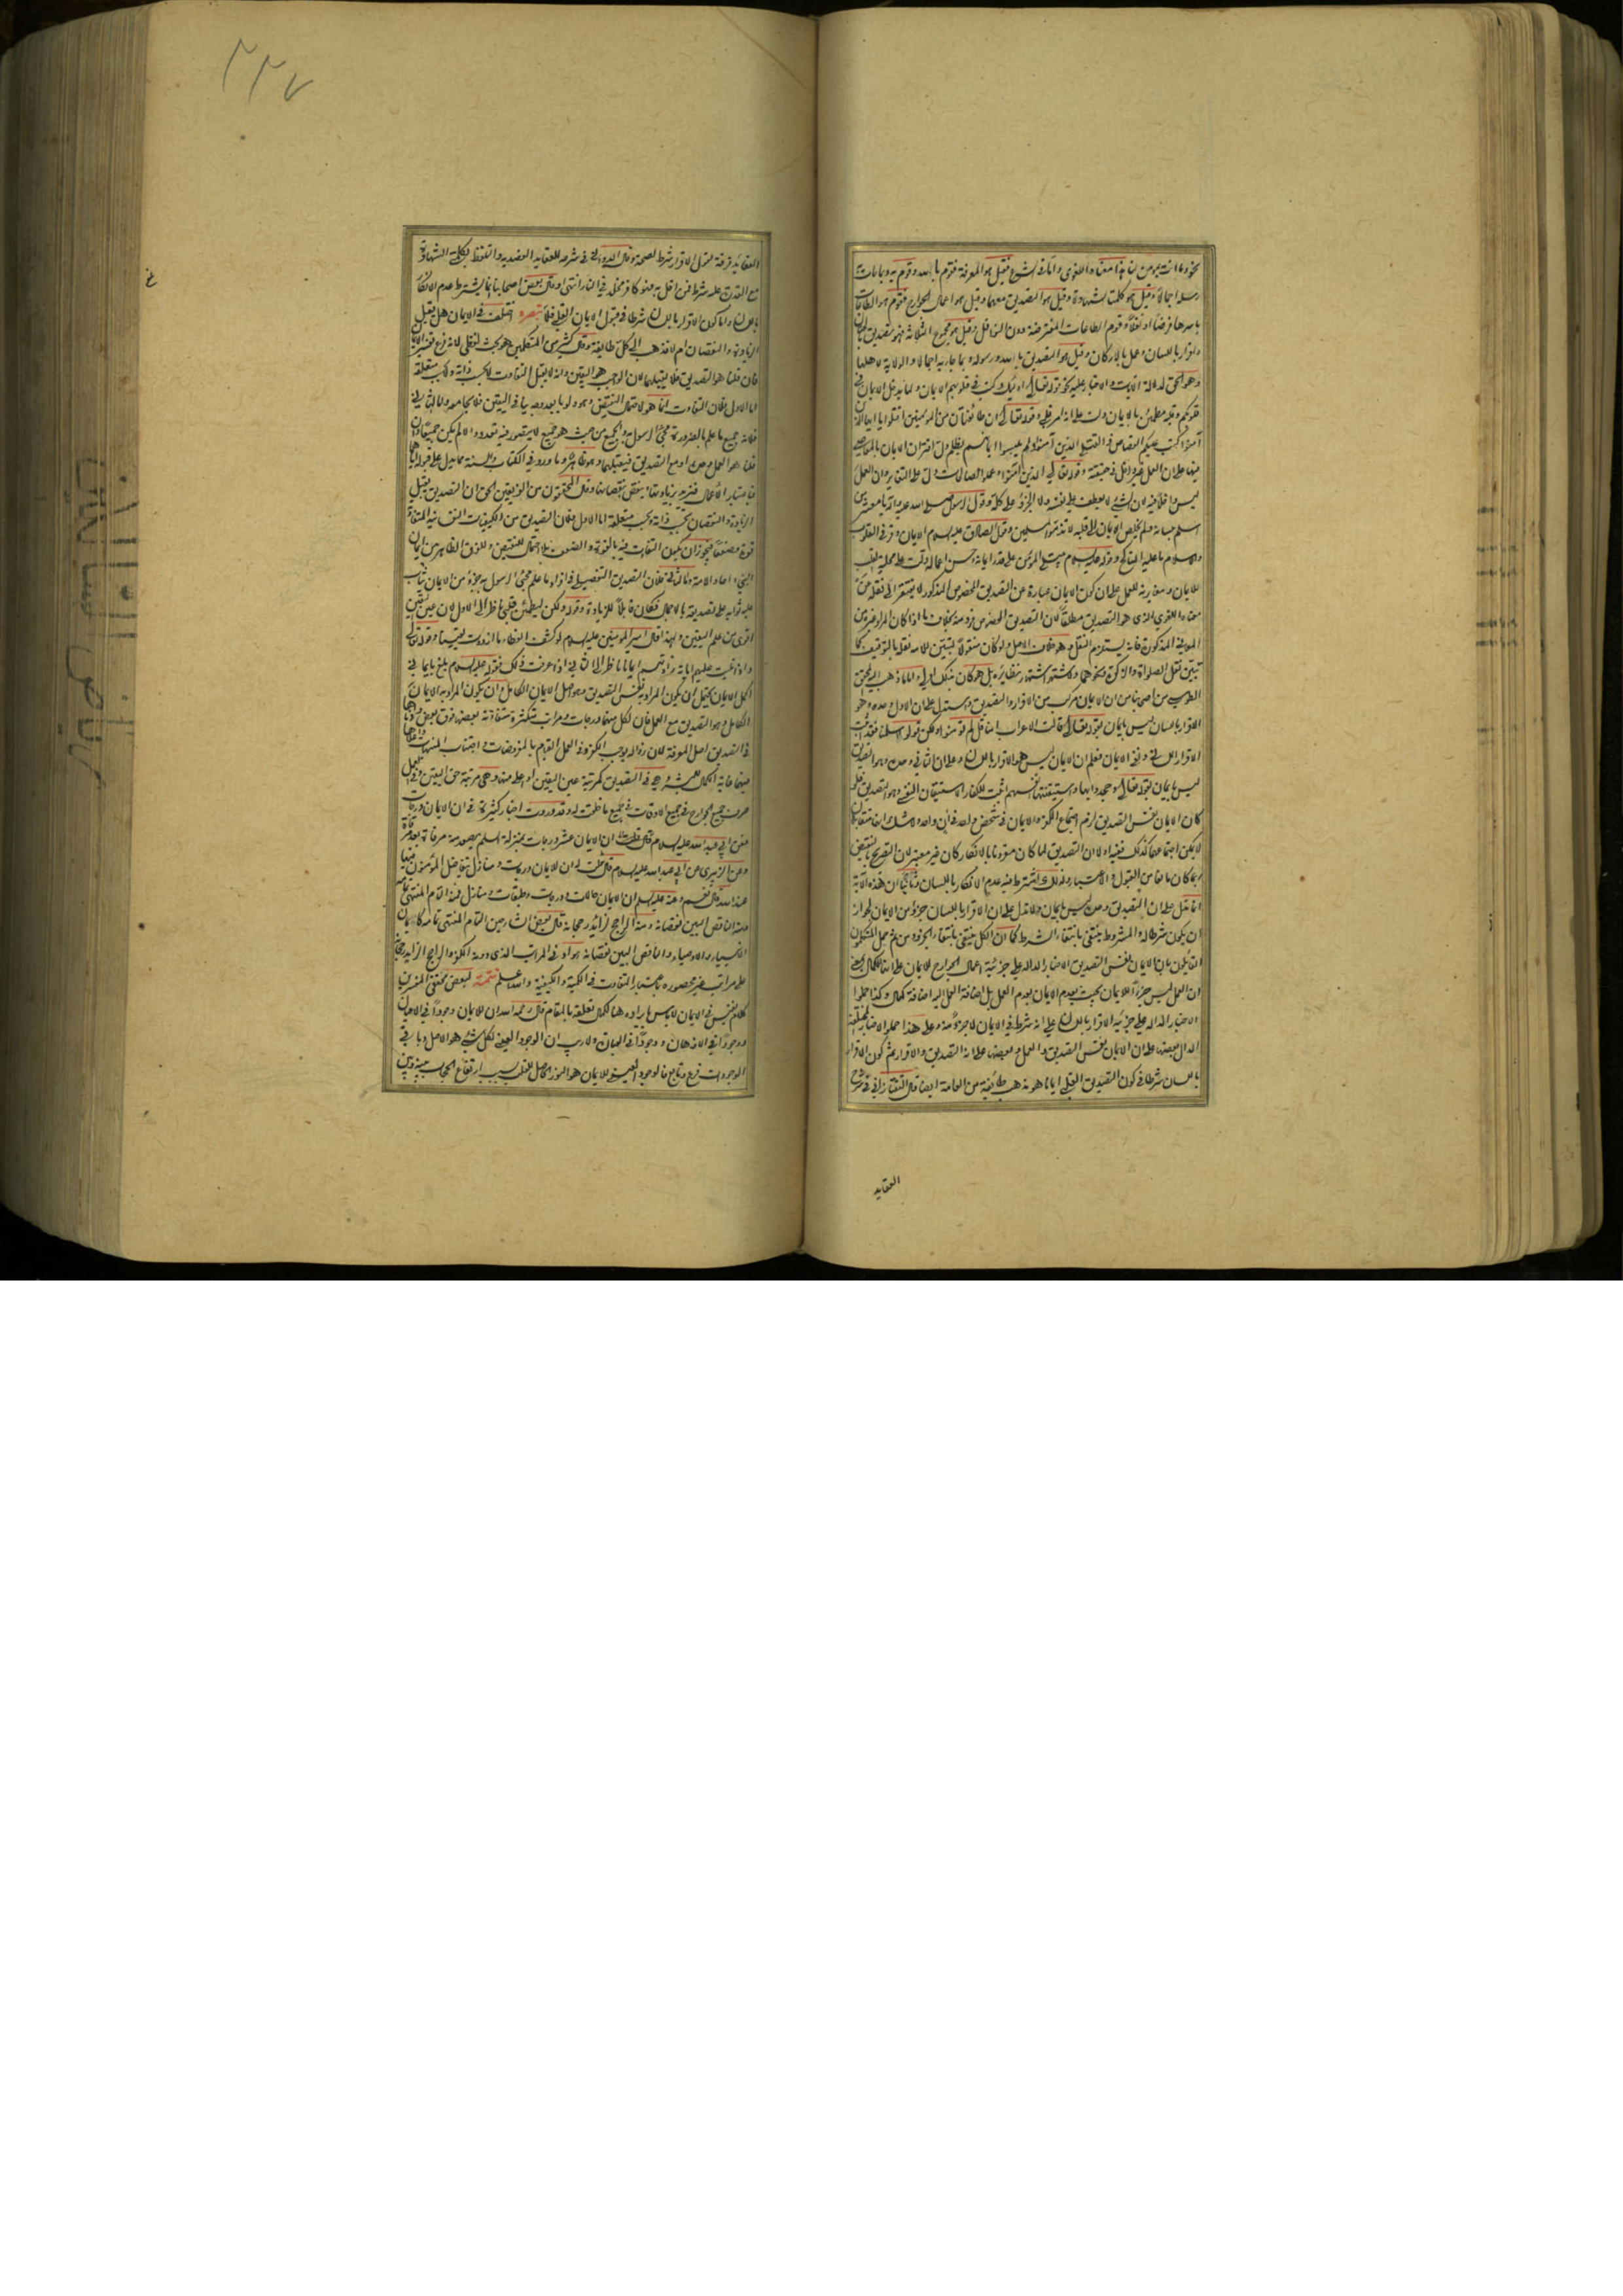 نحو وما انت بمؤمن لنا هذا معناه اللغوى واما فى الشرع فقيل هو المعرفة فقوم بالله وقوم به وبما جاءت به
رسله اجمالا وقيل هو كلمتا الشهادة وقيل هو التصديق معهما وقيل هو اعمال الجوارح فقوم هو الطاعات
باسرها فرضا او نفلا وقوم الطاعات المفترضة دون النوافل وقيل هو مجموع الثلاثة فهو تصديق بالجنان
واقرار باللسان وعمل بالاركان وقيل هو التصديق بالله ورسوله وبما جاء به اجمالا والولاية لاهلها
وهو الحق لدلالة الايات والاخبار عليه نحو قوله تعالى اولئك كتب فى قلوبهم الايمان ولما يدخل الايمان فى
قلوبكم وقلبه مطمئن بالايمان دلت على انه امر قلبى وقوله تعالى وان طائفتان من المؤمنين اقتتلوا يا ايها الذين
آمنوا كتب عليكم القصاص فى القتلى الذين آمنوا ولم يلبسوا ايمانهم بظلم دل اقتران الايمان بالمعاصى
فيها على ان العمل غير داخل فى حقيقته وقوله تعالى الذين آمنوا وعملوا الصالحات دل على التغاير وان العمل
ليس داخلا فيه لان الشىء لا يعطف على نفسه ولا الجزء على كله وقول الرسول صلى الله عليه وآله يا معشر من
اسلم بلسانه ولم يخلص الايمان الى قلبه لا تذموا المسلمين وقول الصادق عليه السلام الايمان وقر فى القلوب
والاسلام ما عليه المناكح وقوله عليه السلام
للايمان ومغايرته للعمل على ان كون الايمان عبارة عن التصديق المخصوص المذكور لا يفتقر الى نقله عن
معناه اللغوى الذى هو التصديق مطلقا لان التصديق المخصوص فرد منه بخلاف ما اذا كان المراد غيره من
المعانى المذكورة فانه يستلزم النقل وهو خلاف الاصل ولو كان منقولا لتبين للامة نقله بالتوقيف كما
تبين نقل الصلوة والزكوة ونحوهما ولاشتهر اشتهار نظائره بل هو كان بذلك اولى واما ما ذهب اليه المحقق
الطوسى من اصحابنا من ان الايمان مركب من الاقرار والتصديق ويستدل على ان الاول وحده وهو
الاقرار باللسان ليس بايمان بقوله تعالى قالت الاعراب امنا قل لم تؤمنوا ولكن قولوا اسلمنا فقد اثبت
الاقرار اللسانى ونفى الايمان فعلم ان الايمان ليس هو الاقرار باللسان وعلى ان الثانى وحده وهو التصديق
ليس بايمان بقوله تعالى وجحدوا بها واستيقنتها انفسهم اثبت للكفار الاستيقان النفسى وهو التصديق فلو
كان الايمان نفس التصديق لزم اجتماع الكفر والايمان فى شخص واحد فى آن واحد ولا شك انهما متقابلان
لا يمكن اجتماعهما كذلك ففيه اولا ان التصديق لما كان مقرونا بالانكار كان غير معتبر لان التصريح بالنقيض
ربما كان مانعا من القبول والاعتبار ولذلك اشترط فيه عدم الانكار باللسان وثانيا ان هذه الآية
انما تدل على ان التصديق وحده ليس بايمان ولا تدل على ان الاقرار باللسان جزء من الايمان لجواز
ان يكون شرطا له والمشروط ينتفى بانتفاء الشرط كما ان الكل ينتفى بانتفاء الجزء ومن ثم حمل المتكلمون
القائلون بان الايمان نفس التصديق الاخبار الدالة على جزئية اعمال الجوارح للايمان على انها للكمال بمعنى
ان العمل ليس جزءا للايمان بحيث يعدم الايمان بعدم العمل بل اضافة العمل اليه اضافة كمال وكذا حملوا
الاخبار الدالة على جزئية الاقرار باللسان على انه شرط فى الايمان لا جزء منه وعلى هذا حملوا الاخبار المختلفة
الدال بعضها على ان الايمان نفس التصديق والعمل وبعضها على انه التصديق والاقرار ثم كون الاقرار
باللسان شرطا فى كون التصديق القلبى ايمانا هو مذهب طائفة من العامة ايضا قال التفتازانى فى شرح
العقايد
٢٢٧
العقائد فرقة تقول الاقرار شرط لصحته وقال الدوانى فى شرحه للعقايد العضدية والتلفظ بكلمتى الشهادتين
مع القدرة عليه شرط فمن اخل به فهو كافر مخلد فى النار انتهى وقال بعض اصحابنا انما يشترط عدم الانكار
باللسان واما كون الاقرار باللسان شرطا فى قبول الايمان القلبى فلا تبصره اختلف فى الايمان هل يقبل
الزيادة والنقصان ام لا فذهب الى كل طائفة وقال كثير من المتكلمين هو بحث لفظى لانه فرع تفسير الايمان
فان قلنا هو التصديق فلا يقبلهما لان الواجب هو اليقين وانه لا يقبل التفاوت لا بحسب ذاته ولا بحسب متعلقه
اما الاول فلان التفاوت انما هو لاحتمال النقيض وهو ولو بابعد وجه ينافى اليقين فلا يجامعه واما الثانى
فلانه جميع ما علم بالضرورة مجىء الرسول به والجميع من حيث هو جميع لا يتصور فيه تعدد والا لم يكن جميعا وان
قلنا هو العمل وحده او مع التصديق فيقبلهما وهو ظاهر وما ورد فى الكتاب والسنة مما يدل على قبوله اياهما
فباعتبار الاعمال فيزيد بزيادتها وينقص بنقصانها وقال المحققون من الفريقين الحق ان التصديق يقبل
الزيادة والنقصان بحسب ذاته وبحسب متعلقه اما الاول فلان التصديق من الكيفيات النفسانية المتفاوتة
قوة وضعفا فيجوز ان يكون التفاوت فيه بالقوة والضعف بلا احتمال للنقيض وللفرق الظاهر بين ايمان
النبى وآحاد الامة واما الثانى فلان التصديق التفصيلى فى افراد ما علم مجىء الرسول به جزء من الايمان يثاب
عليه ثوابه على تصديقه بالاجمال فكان قابلا للزيادة وقوله ولكن ليطمئن قلبى ناظر الى الاول لان عين اليقين
اقوى من علم اليقين ولهذا قال امير المؤمنين عليه السلام لو كشف الغطاء ما ازددت يقينا وقوله تعالى
واذا تليت عليهم اياته زادتهم ايمانا ناظر الى الثانى اذا عرفت ذلك فقوله عليه السلام بلغ بايمانى
اكمل الايمان يحتمل ان يكون المراد به نفس التصديق وهو اصل الايمان الكامل وان يكون المراد به الايمان
الكامل وهو التصديق مع العمل فان لكل منهما درجات ومراتب متكثرة متفاوتة بعضها فوق بعض
فى التصديق اصل المعرفة لان زواله يوجب الكفر وفى العمل القيام بالمفروضات واجتناب المنهيات
فيهما غاية الكمال للبشر وهى فى التصديق كمرتبة عين اليقين او اعلى منها وهى مرتبة حق اليقين وفى العمل
صرف جميع الجوارح فى جميع الاوقات فى جميع ما خلقت له وقد وردت اخبار كثيرة فى ان الايمان درجات
فعن ابى عبد الله عليه السلام قال ان الايمان عشر درجات بمنزلة السلم يصعد منه مرقاة بعد مرقاة
وعن الزبيرى عن ابى عبد الله عليه السلام قال قلت له ان للايمان درجات ومنازل يتفاضل المؤمنون فيها
عند الله قال نعم وعنه عليه السلم ان الايمان حالات ودرجات وطبقات ومنازل فمنه التام المنتهى تمامه
ومنه الناقص البين نقصانه ومنه الراجح الزائد رجحانه قال بعض الشارحين التام المنتهى تمامه كايمان
الانبياء والاوصياء والناقص البين نقصانه هو ادنى المراتب الذى دونه الكفر والراجح الزايد رجحانه
على مراتب غير محصورة باعتبار التفاوت فى الكمية والكيفية والله اعلم تتمه لبعض محققى المفسرين
كلام نفيس فى الايمان لا بأس بايراده هنا لكمال تعلقه بالمقام قال رحمه الله ان للايمان وجودا فى الاعيان
ووجودا فى الاذهان ووجودا فى العبارة ولا ريب ان الوجود العينى لكل شىء هو الاصل وباقى
الوجودات فرع وتابع فالوجود العينى للايمان هو النور الحاصل للقلب بسبب ارتفاع الحجاب بينه وبين